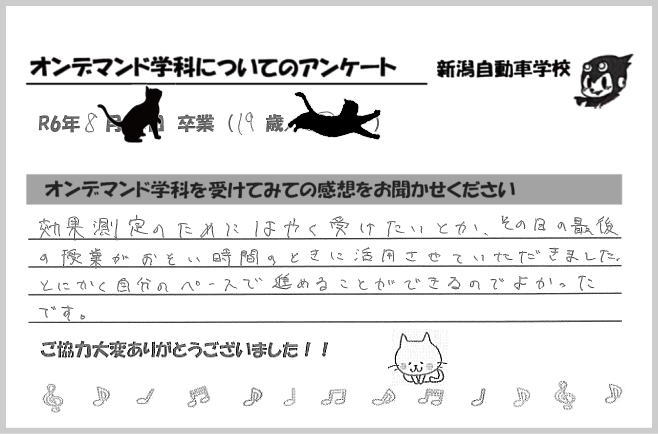 オンデマンド学科についてのアンケート
新潟自動車学校
R6年8月 日 卒業(19歳
オンデマンド学科を受けてみての感想をお聞かせください
効果測定のためにはやく受けたいとか、その日の最後
の授業がおそい時間のときに活用させていただきました。
とにかく自分のペースで進めることができるのでよかった
です。
ご協力大変ありがとうございました!!